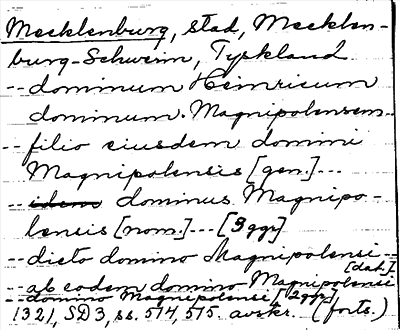 Mecklenburg, stad, Mecklen-
burg-Schwerin, Tyskland
-- dominum Heinricum
dominum Magnipolensem --
-- filio eiusdem domini
Magnipolensis [gen.] ---
-- idem dominus Magnipo-
lensis [nom.] --- [3 ggr]
-- dicto domino Magnipolensi --
[dat.]
-- ab eodem domino Magnipolensi
-- domino Magnipolensi [2 ggr]
1321, SD3, ss. 514, 515 avskr. (forts.)